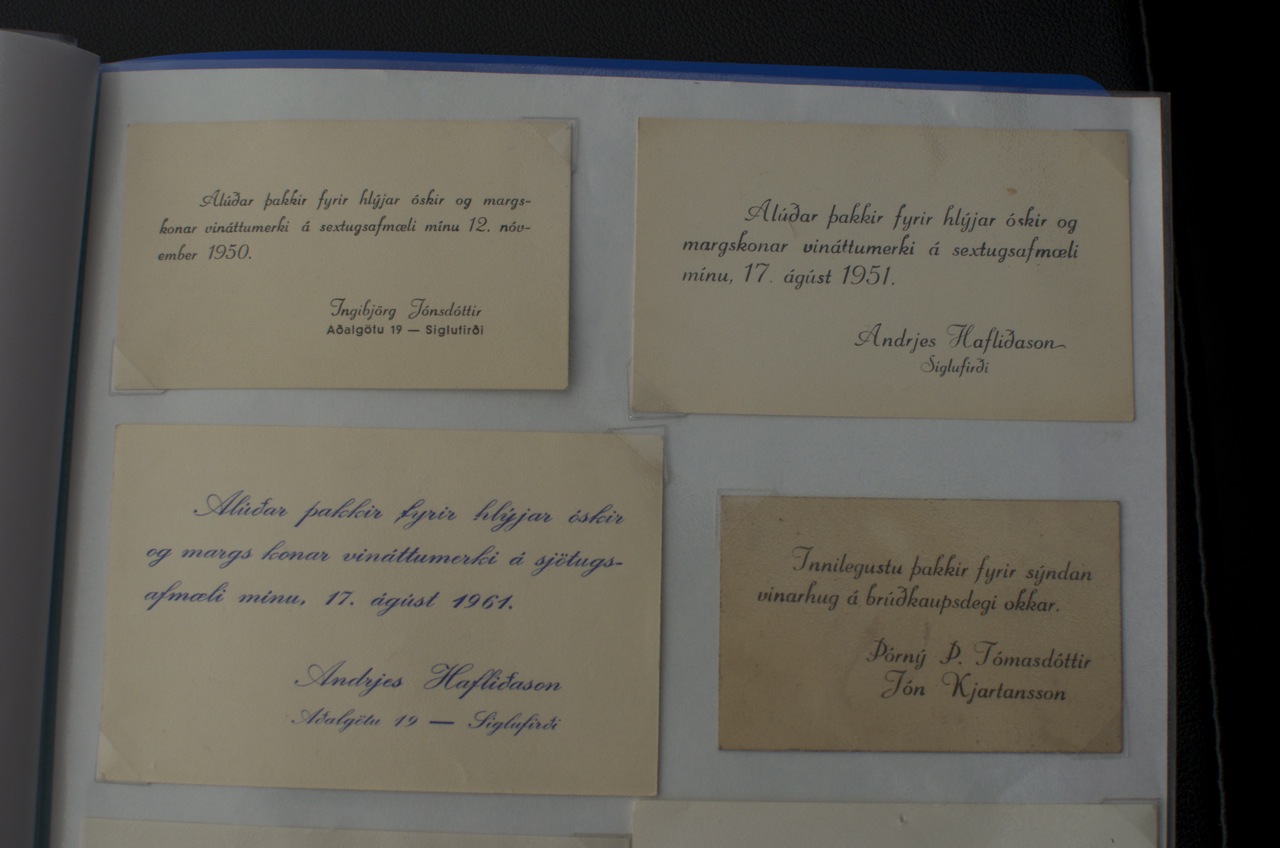 Alúðar þakkir fyrir hlýjar óskir og margs-
konar vináttumerki á sextugsafmæli mínu 12. nóv-
ember 1950.
Ingibjörg Jónsdóttir
Aðalgötu 19 — Siglufirði
Alúðar þakkir fyrir hlýjar óskir og
margskonar vináttumerki á sextugsafmæli
mínu, 17. ágúst 1951.
Andrjes Hafliðason
Siglufirði
Alúðar þakkir fyrir hlýjar óskir
og margs konar vináttumerki á sjötugs-
afmæli mínu, 17. ágúst 1961.
Andrjes Hafliðason
Aðalgötu 19 — Siglufirði
Innilegustu þakkir fyrir sýndan
vinarhug á brúðkaupsdegi okkar.
Þórný Þ. Tómasdóttir
Jón Kjartansson